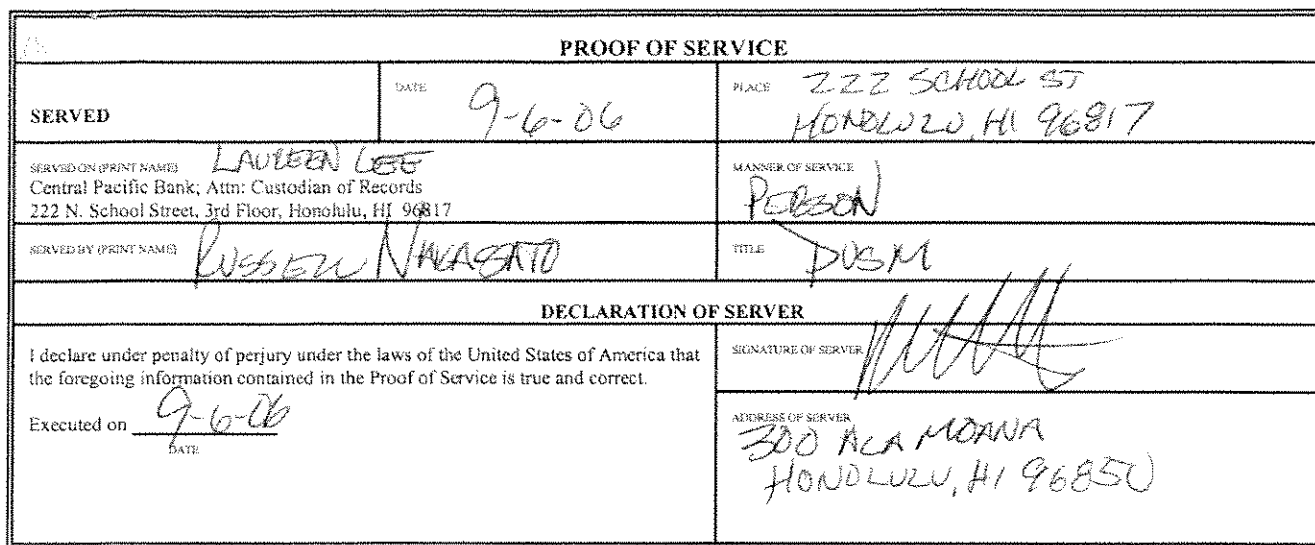 PROOF OF SERVICE
SERVED
DATE 9-6-06
PLACE 222 SCHOOL ST
HONOLULU, HI 96817
SERVED ON (PRINT NAME) LAUREEN LEE
Central Pacific Bank; Attn: Custodian of Records
222 N. School Street, 3rd Floor, Honolulu, HI 96817
MANNER OF SERVICE
PERSON
SERVED BY (PRINT NAME) RUSSELL NAKASATO
TITLE DUSM
DECLARATION OF SERVER
I declare under penalty of perjury under the laws of the United States of America that
the foregoing information contained in the Proof of Service is true and correct.
Executed on 9-6-06
DATE
SIGNATURE OF SERVER
ADDRESS OF SERVER
300 ALA MOANA
HONOLULU, HI 96850